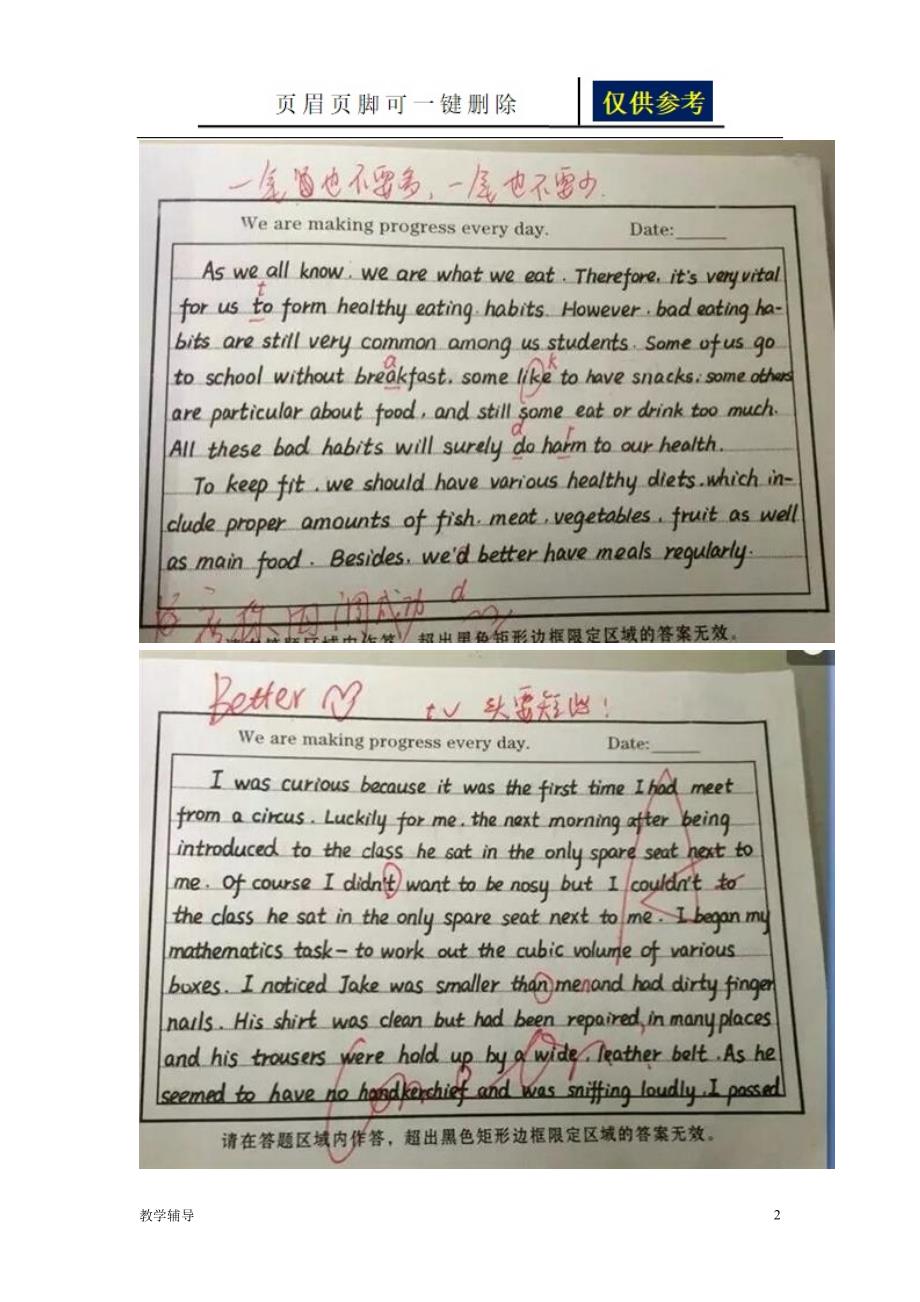 页眉页脚可一键删除
仅供参考
一笔也不要多，一笔也不要少.
We are making progress every day. Date:
As we all know, we are what we eat. Therefore, it's very vital
t
for us to form healthy eating habits. However, bad eating ha-
bits are still very common among us students. Some of us go
a k
to school without breakfast, some like to have snacks, some others
are particular about food, and still some eat or drink too much.
d r
All these bad habits will surely do harm to our health.
To keep fit, we should have various healthy diets, which in-
clude proper amounts of fish, meat, vegetables, fruit as well
as main food. Besides, we'd better have meals regularly.
成功 d
超出黑色矩形边框限定区域的答案无效。
Better
t 头要短些！
We are making progress every day. Date:
I was curious because it was the first time I had meet
from a circus. Luckily for me, the next morning after being
introduced to the class he sat in the only spare seat next to
me. Of course I didn't want to be nosy but I couldn't to
the class he sat in the only spare seat next to me. I began my
mathematics task - to work out the cubic volume of various
boxes. I noticed Jake was smaller than men and had dirty finger
nails. His shirt was clean but had been repaired in many places
and his trousers were hold up by a wide, leather belt. As he
seemed to have no handkerchief and was sniffing loudly, I passed
请在答题区域内作答，超出黑色矩形边框限定区域的答案无效。
教学辅导 2